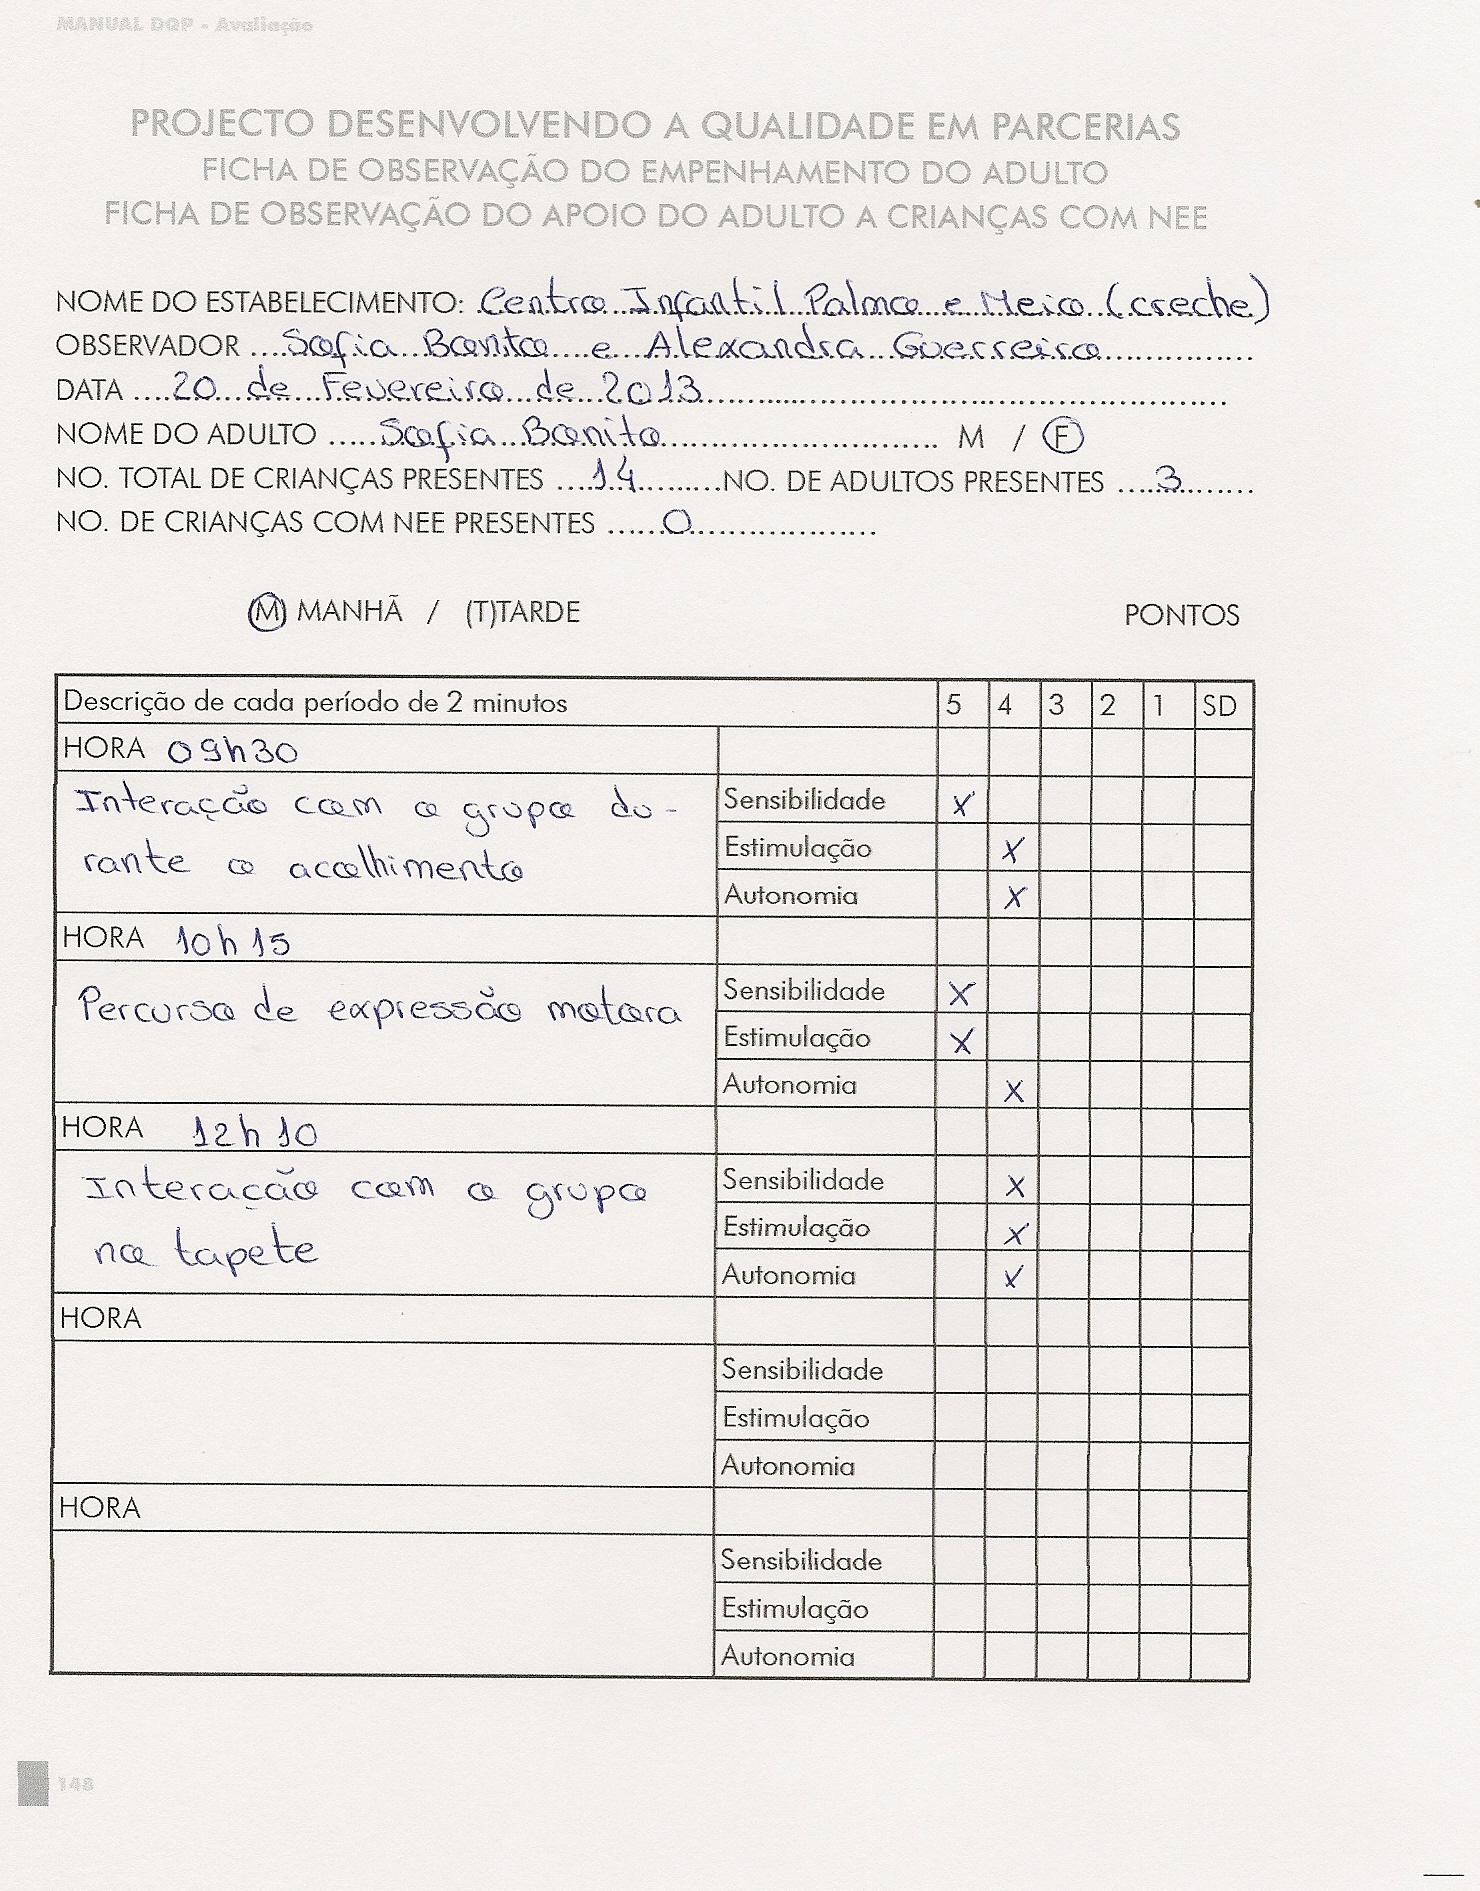 MANUAL DQP - Avaliação
PROJECTO DESENVOLVENDO A QUALIDADE EM PARCERIAS
FICHA DE OBSERVAÇÃO DO EMPENHAMENTO DO ADULTO
FICHA DE OBSERVAÇÃO DO APOIO DO ADULTO A CRIANÇAS COM NEE
NOME DO ESTABELECIMENTO: Centro Infantil Palmo e Meio (creche)
OBSERVADOR Sofia Bonito e Alexandra Guerreiro
DATA 20 de Fevereiro de 2013
NOME DO ADULTO Sofia Bonito M / F
NO. TOTAL DE CRIANÇAS PRESENTES 14 NO. DE ADULTOS PRESENTES 3
NO. DE CRIANÇAS COM NEE PRESENTES 0
(M) MANHÃ / (T)TARDE PONTOS
Descrição de cada período de 2 minutos 5 4 3 2 1 SD
HORA 09h30
Interação com o grupo du-
rante o acolhimento
Sensibilidade X
Estimulação X
Autonomia X
HORA 10h15
Percurso de expressão motora
Sensibilidade X
Estimulação X
Autonomia X
HORA 12h10
Interação com o grupo
no tapete
Sensibilidade X
Estimulação X
Autonomia X
HORA
Sensibilidade
Estimulação
Autonomia
HORA
Sensibilidade
Estimulação
Autonomia
148